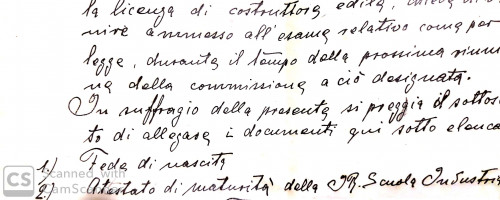 la licenza di costruttora, edila,
nire ammesso all'esama relativo coma par
legge, duranta il tempo della prossima riunio
na della commissiona a ciò designata.
In suffragio della presenta si preggia il sottos
to di allegara i documenti qui sotto elenca
1.) Fede di nascita
2.) Atestato di maturità della IR. Scuola Industria
CS Scanned with
CamScanner